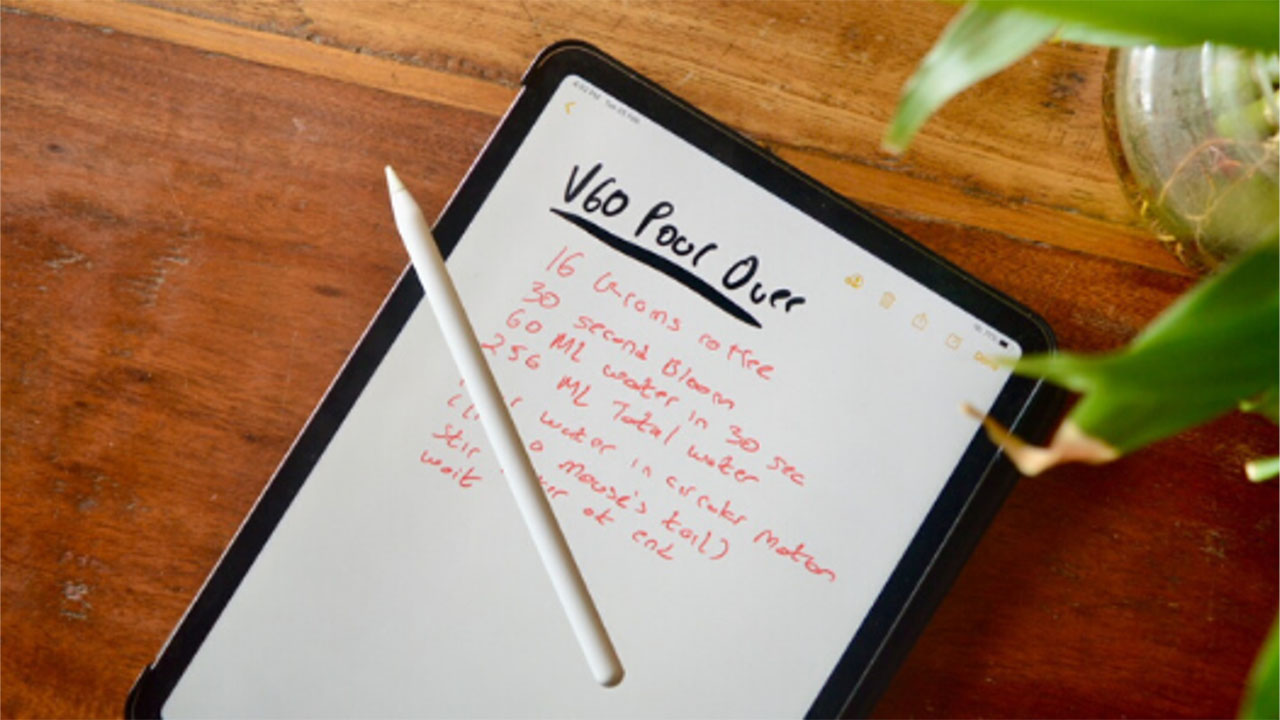 4:02 PM Tue 25 Feb
V60 Pour Over
16 Grams coffee
30 second Bloom
60 ML water in 30 sec
256 ML Total water
water in circular Motion
Mouse's tail)
Stir at end
wait